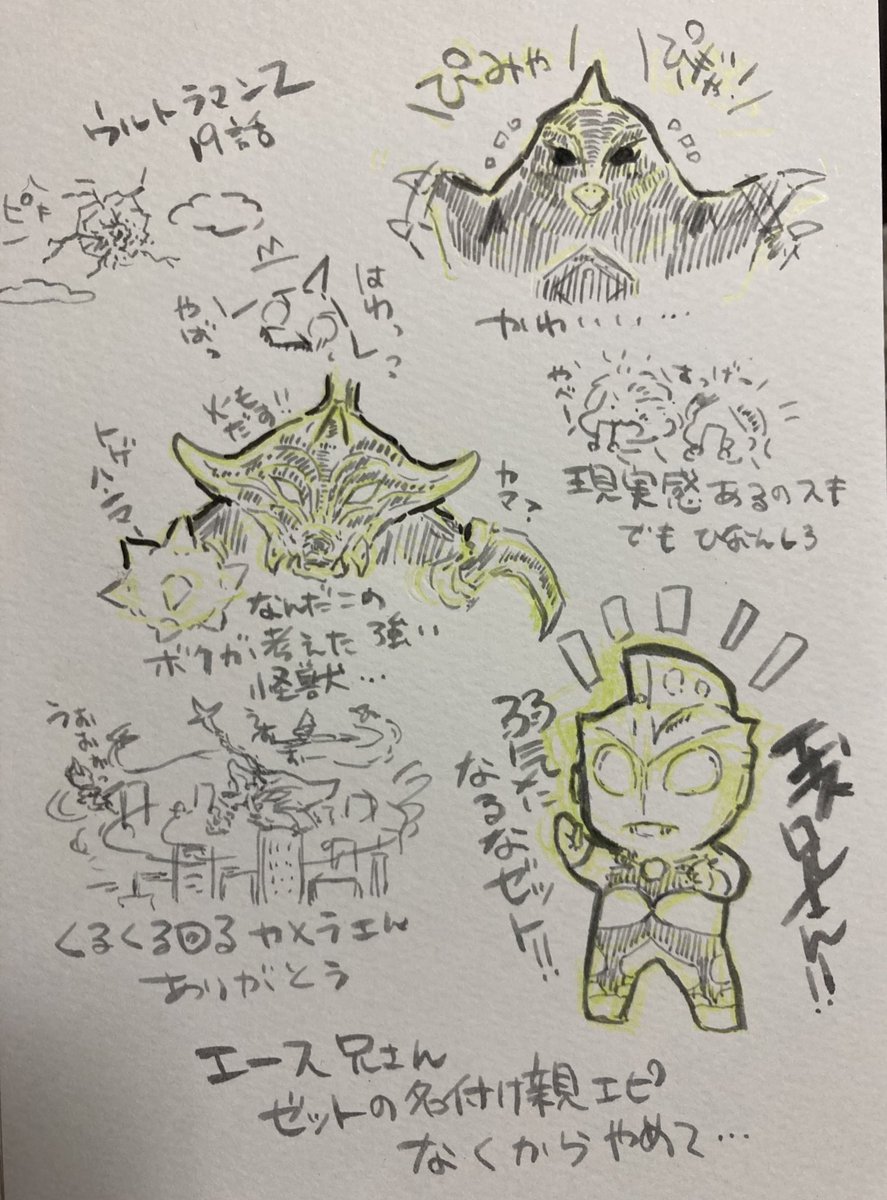 ウルトラマンZ
19話
ぴーみや
ぴぎゃ
かわいい…
はわっ
やばっ
やべー
すっげー
現実感あるのスキ
でもひなんしろ
火も
だす!!
トゲ
ハンマー
カマ?
なんだこの
ボクが考えた強い
怪獣…
うおお
くるくる回るカメラさん
ありがとう
弱気に
なるなゼット!!
兄さん!!
エース兄さん
ゼットの名付け親エピ
なくからやめて…